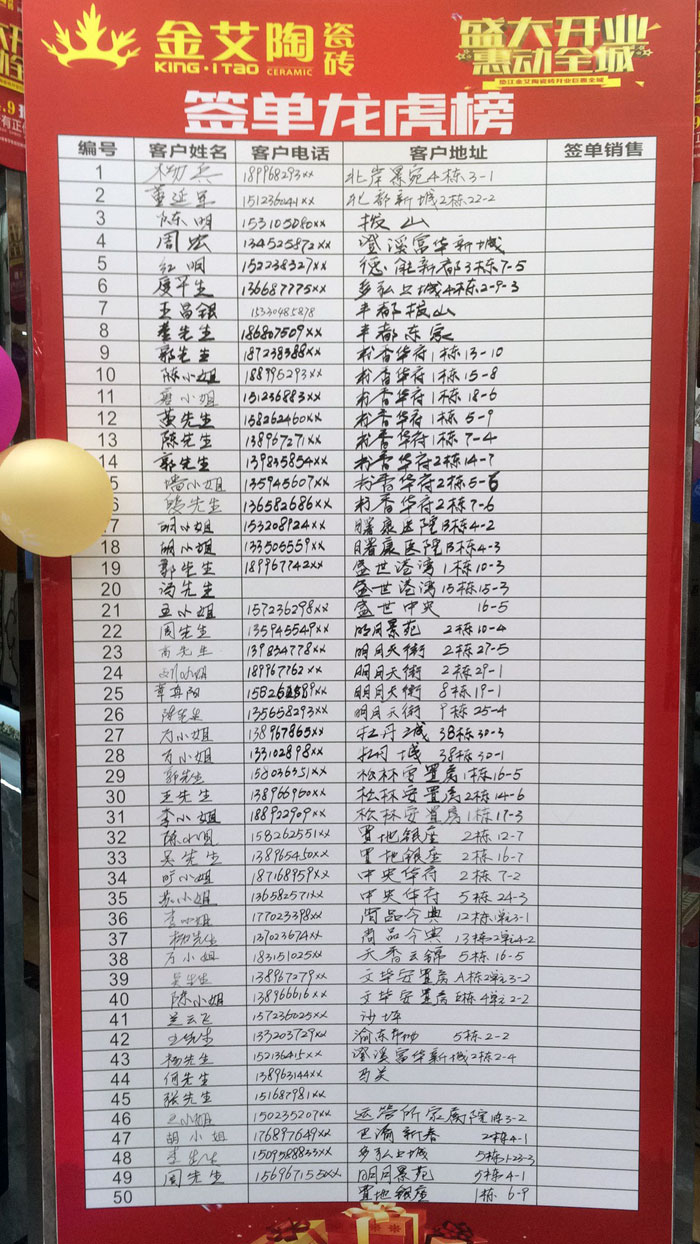 金艾陶 瓷砖
KING·ITAO CERAMIC
盛大开业
惠动全城
垫江金艾陶瓷砖开业巨惠全城
签单龙虎榜
编号 客户姓名 客户电话 客户地址 签单销售
1 杨兵 189968293xx 北岸景宛4栋3-1
2 董延军 151236041xx 北部新城2栋22-2
3 陈明 153105080xx 拔山
4 周宏 134525872xx 澄溪富华新城
5 红明 152238327xx 德能新都3栋7-5
6 庹先生 136687775xx 多弘上城4栋2-9-3
7 王昌银 15330485878 丰都拔山
8 李先生 186807509xx 丰都东家
9 郭先生 187238388xx 书香华府1栋13-10
10 陈小姐 188996293xx 书香华府1栋15-8
11 小姐 151236883xx 书香华府1栋18-6
12 黄先生 158262460xx 书香华府1栋5-9
13 陈先生 138967271xx 书香华府1栋7-4
14 郭先生 139835854xx 书香华府2栋14-7
5 小姐 135945607xx 书香华府2栋5-6
6 先生 136582686xx 书香华府2栋7-6
7 胡小姐 153208924xx 曙康医院B栋4-2
18 胡小姐 133505559xx 曙康医院B栋4-3
19 郭先生 189967742xx 盛世港湾1栋10-3
20 冯先生 盛世港湾15栋15-3
21 王小姐 157236298xx 盛世中央 16-5
22 周先生 135945549xx 明月景苑 2栋10-4
23 高先生 139834778xx 明月天街 2栋27-5
24 刘小姐 189967762xx 明月天街 2栋29-1
25 章舟阳 158262589xx 明月天街 8栋19-1
26 先生 135658293xx 明月天街 9栋25-4
27 方小姐 138967865xx 牡丹城 38栋30-3
28 方小姐 133102898xx 牡丹城 38栋30-1
29 郭先生 156036351xx 松林安置房1栋16-5
30 王先生 138966960xx 松林安置房2栋14-6
31 李小姐 188922909xx 松林安置房1栋17-3
32 陈小姐 158262551xx 置地银座 2栋12-7
33 吴先生 138965450xx 置地银座 2栋16-7
34 旷小姐 187168959xx 中央华府 2栋7-2
35 苏小姐 136582571xx 中央华府 5栋24-3
36 李小姐 177023398xx 尚品今典 12栋1单3-1
37 杨先生 137023674xx 尚品今典 13栋2单元4-2
38 方小姐 183151025xx 天香云锦 5栋16-5
39 吴先生 138967279xx 文毕安置房A栋2单3-2
40 陈小姐 138966616xx 文毕安置房B栋4单2-2
41 兰云飞 157236025xx 沙坪
42 133203729xx 渝东 5栋2-2
43 杨先生 152136415xx 澄溪富华新城2栋2-4
44 何先生 138963144xx
45 张先生 151687981xx
46 王小姐 150235207xx 运管所家属院1栋3-2
47 胡小姐 176897649xx 巴渝新春 2栋4-1
48 李先生 1509588833xx 多弘上城 5栋1-23-3
49 周先生 156967155xx 明月景苑 5栋4-1
50 置地银座 1栋 6-9